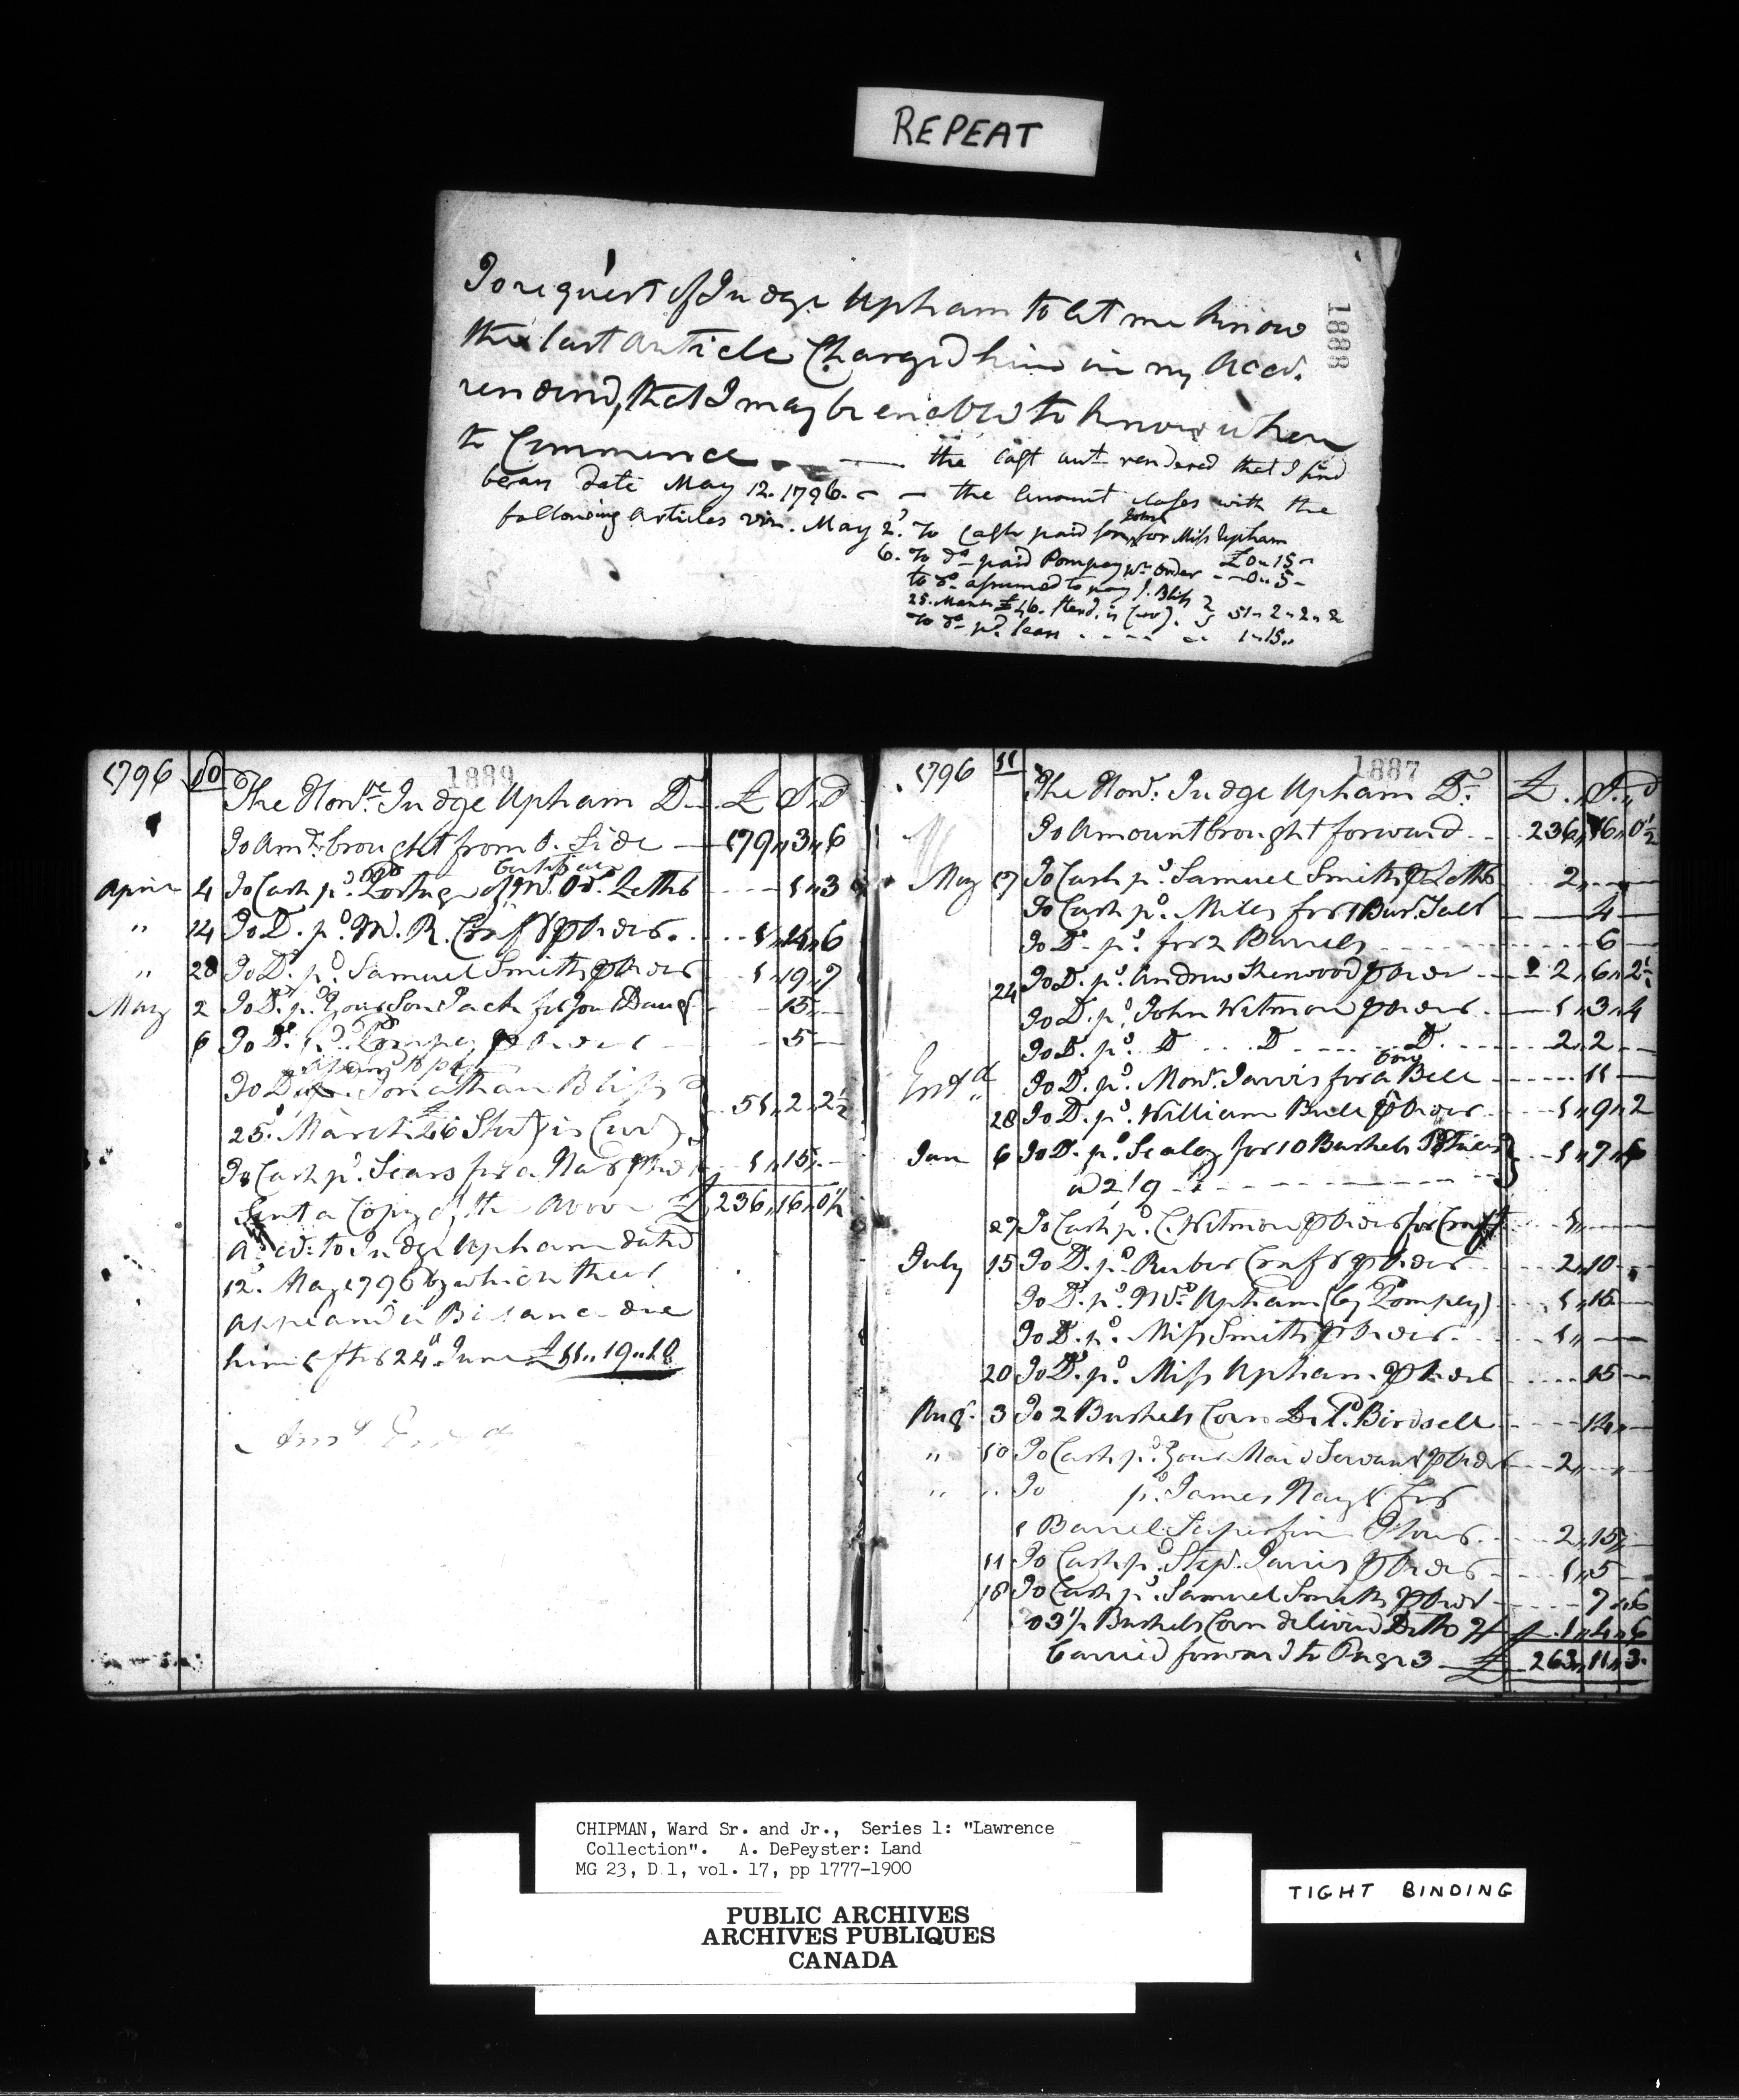 REPEAT
1888
To request of Judge Upham to let me know
the last article Charged him in my Accd.
renderd, that I may be enabled to know when
to Commence — the last acct rendered that I find
bears date May 12. 1796. — the amount closes with the
following articles viz. May 2d. To Cash paid Jona for Miss Upham
£0 " 15 -
6. To do paid Pompey pr order - - 0 " 5 -
to do. assumed to pay J. Bliss
25. March £46. sterl. is (cur). } 51 " 2 " 2 " 2
To do pd. Sears - - - - 1 " 15 "
1796 10 1889
The Honble Judge Upham Dr £ S D
To Amt. brought from O. Side 179 " 3 " 6
April 4 To Cash pd. Postage of Letters 1 " 3
" 14 To D. pd. M. R. Crafs pr Order 1 " 14 " 6
" 28 To D. pd. Samuel Smith pr Order 1 " 19 " 7
May 2 To D. pd. Your Son Jack for your Daug 15
6 To D. pd. Pompey pr Order 5
assumd to pay
To D Jonathan Bliss
25. March £46 Ster) is (cur) } 51 " 2 " 2 1/2
To Cash pd. Sears for a 1 " 15 "
Sent a Copy of the above £ 236 " 16 " 0 1/2
Accd. to Judge Upham dated
12. May 1796 by which there
appeard a Balance due
him after 24. June £11 " 19 " 10
1796 11 1887
The Hond. Judge Upham Dr £ S. D
To Amount brought forward 236 " 16 " 0 1/2
May 17 To Cash pd. Samuel Smith pr Letter 2 "
To Cash pd. Miles for 1 Bus. Salt 4
To D pd. for 2 Barrels 6
24 To D. pd. Andrew Sherwood pr Order 2 " 6 " 2 1/2
To D. pd. John Wetmore pr Order 1 " 3 " 4
To D. pd. D D D 2 " 2
Cow
To D. pd. Mon. Jarvis for a Bell 11
28 To D. pd. William Bull pr Order 1 " 9 " 2
Jun 6 To D. pd. Sealey for 10 Bushels } 1 " 7 " 6
a 2/9
27 To Cash pd. C. Wetmore pr Order for Craft 1 "
July 15 To D. pd. Ruber Crafs pr Order 2 " 10
To D. pd. Mrs Upham (by Pompey) 1 " 15
To D. pd. Miss Smith pr Order 1 "
20 To D. pd. Miss Upham pr Order 15
Aug. 3 To 2 Bushels Corn Dr. P. Birdsell 14 "
" 10 To Cash pd. Your Maid Servant pr Order 2 "
" " To pd. James for
1 Barrel Superfine Flour 2 " 15 "
11 To Cash pd. Step. Jarvis pr Order 1 " 5
18 To Cash pd. Samuel Smith pr Order 7 " 6
To 3 1/2 Bushels Corn deliverd Ditto 7/ 1 " 4 " 6
Carried forward to Page 3 £ 263 " 11 " 3
CHIPMAN, Ward Sr. and Jr., Series 1: "Lawrence
Collection". A. DePeyster: Land
MG 23, D 1, vol. 17, pp 1777-1900
PUBLIC ARCHIVES
ARCHIVES PUBLIQUES
CANADA
TIGHT BINDING